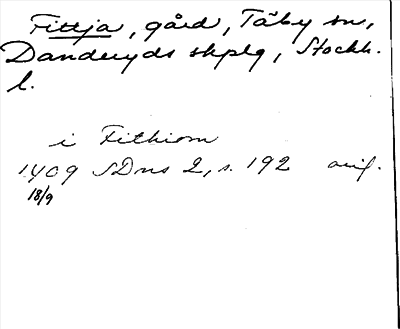 Fittja, gård, Täby sn,
Danderyds skplg, Stockh.
l.
i Fithiom
1409 SDns 2, s. 192 avig.
18/9